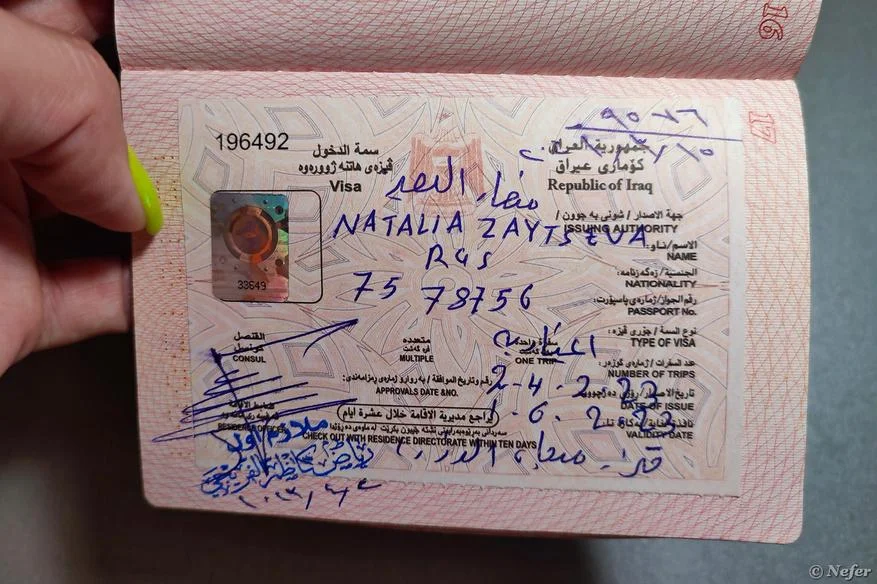 16
17
196492
سمة الدخول
ڤیزەی هاتنە ژوورەوە
Visa
٩٥٠٧٦
جمهورية العراق
كۆماری عیراق
Republic of Iraq
جهة الاصدار / شوێنی بە جوون /
ISSUING AUTHORITY
NATALIA ZAYTSEVA
الاسم/ناو:
NAME
Rus
الجنسية / رەگەزنامە:
NATIONALITY
75 78756
رقم الجواز/ژمارەی پاسپۆرت:
PASSPORT No.
33649
نوع السمة / جۆری ڤیزە:
TYPE OF VISA
القنصل
CONSUL
متعددة
MULTIPLE
سفرة واحدة
ONE TRIP
عدد السفرات / ژمارەی گوزەر:
NUMBER OF TRIPS
رقم وتاريخ الموافقة / بە روارو ژمارەی رەزامەندی:
APPROVALS DATE &NO.
2-4.2023
DATE OF ISSUE
1.6.2023
VALIDITY DATE
يراجع مديرية الاقامة خلال عشرة أيام
CHECK OUT WITH RESIDENCE DIRECTORATE WITHIN TEN DAYS
ملازم اول
© Nefer